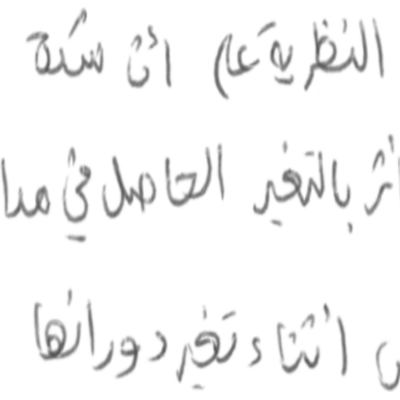 النظرية على أن شدة
أثر بالتغير الحاصل في مدا
اثناء تغير دورانها